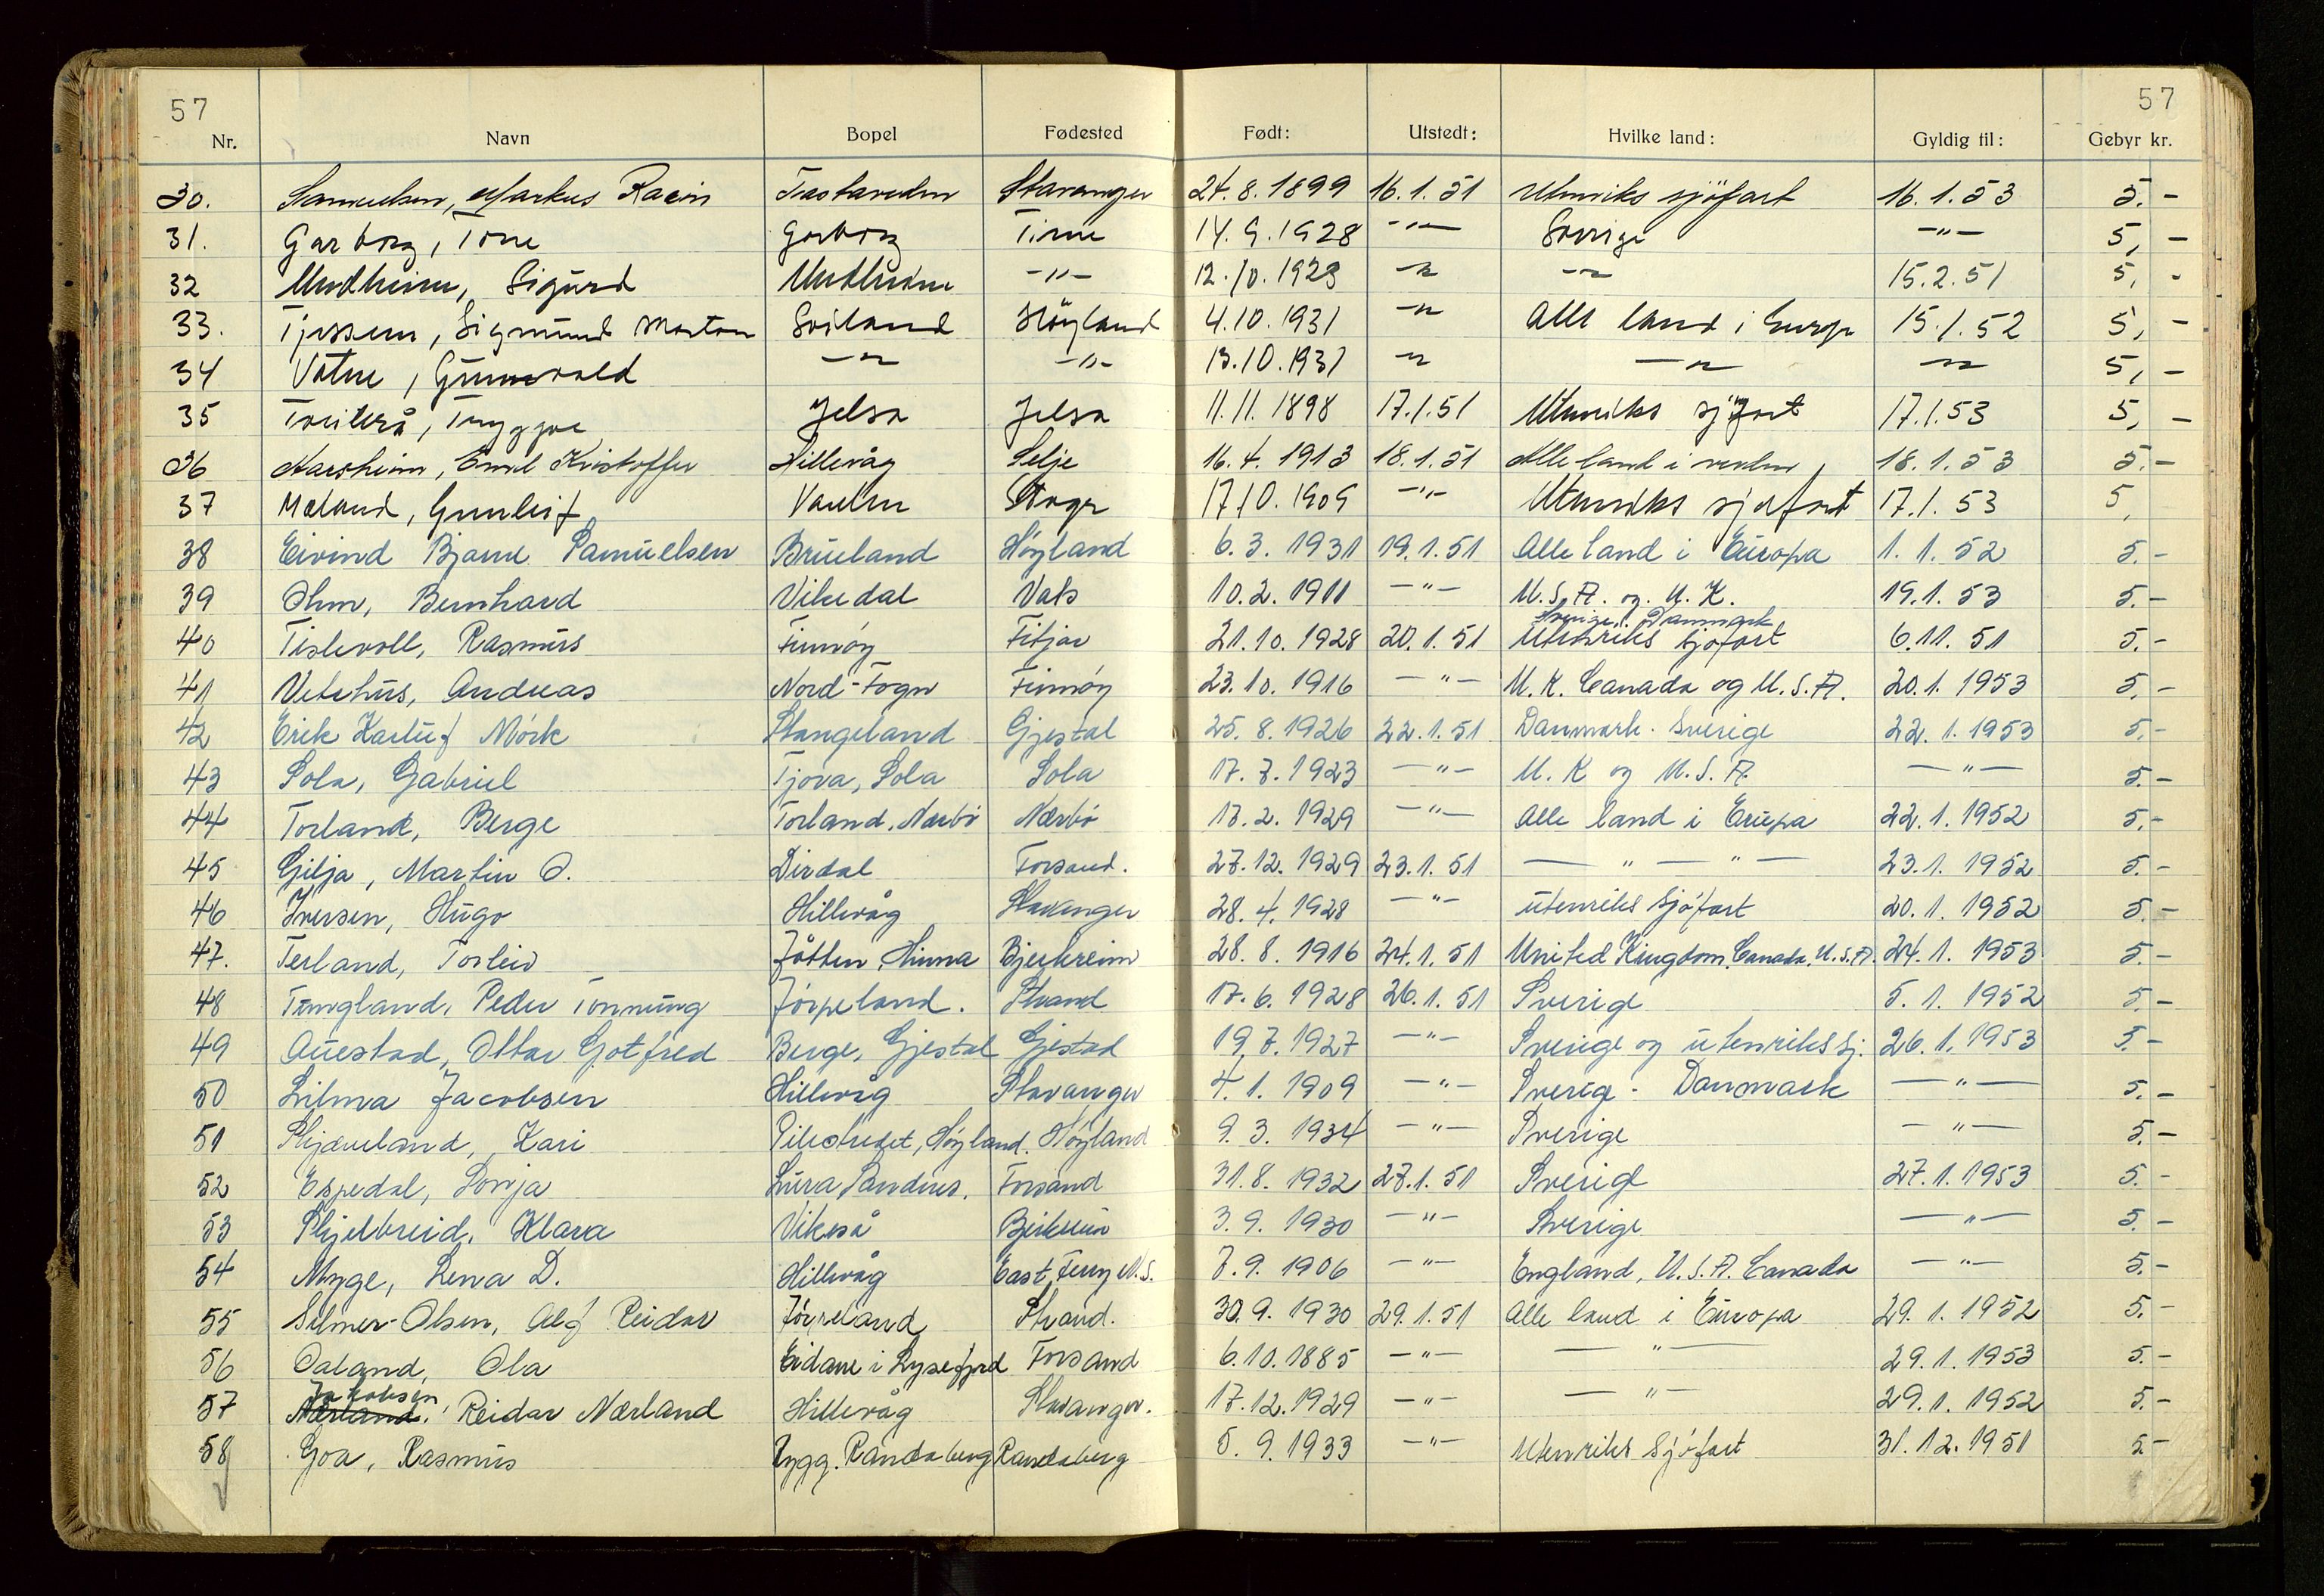 57 57
Nr. Navn Bopel Fødested Født: Utstedt: Hvilke land: Gyldig til: Gebyr kr.
30. Samuelsen, Markus Stavanger 24.8.1899 16.1.51 Utenriks sjöfart 16.1.53 5.-
31. Garborg, Tone Garborg Time 14.9.1928 -"- Sverige -"- 5,-
32 Undheim, Sigurd Undheim -"- 12.10.1923 -"- -"- 15.2.51 5,-
33. Tjessem, Sigmund Morton Sviland Höyland 4.10.1931 -"- Alle land i Europa 15.1.52 5,-
34 Vatne, Grunvald -"- -"- 13.10.1931 -"- -"- -"- 5,-
35 Tveiterå, Tryggve Jelsa Jelsa 11.11.1898 17.1.51 Utenriks sjöfart 17.1.53 5,-
36 Aarsheim, Emil Kristoffer Hillevåg Selje 16.4.1913 18.1.51 Alle land i verden 18.1.53 5.-
37 Mæland, Gunleif Vaulen 17.10.1909 -"- Utenriks sjøfart 17.1.53 5,
38 Eivind Bjarne Samuelsen Brueland Höyland 6.3.1931 19.1.51 Alle land i Europa 1.1.52 5.-
39 Ohm, Bernhard Vikedal Vats 10.2.1911 -"- U.S.A. og U.K. 19.1.53 5.-
Sverige, Danmark
40 Tislevoll, Rasmus Finnöy Fitjar 21.10.1928 20.1.51 Utenriks sjöfart 6.11.51 5.-
41 Vetrhus, Andreas Nord-Fogn Finnöy 23.10.1916 -"- U.K. Canada og U.S.A. 20.1.1953 5.-
42 Erik Karluf Mörk Stangeland Gjestal 25.8.1926 22.1.51 Danmark - Sverige 22.1.1953 5.-
43 Sola, Gabriel Tjora, Sola Sola 17.7.1923 -"- U.K og U.S.A. -"- 5.-
44 Torland, Berge Torland, Nærbö Nærbö 17.2.1929 -"- Alle land i Europa 22.1.1952 5.-
45 Gilja, Martin O. Dirdal Forsand. 27.12.1929 23.1.51 -"-"- 23.1.1952 5.-
46 Iversen, Hugo Hillevåg Stavanger 28.4.1928 -"- utenriks sjöfart 20.1.1952 5.-
47. Terland, Torleiv Jåtten, Hinna Bjerkreim 28.8.1916 24.1.51 United Kingdom, Canada, U.S.A. 24.1.1953 5.-
48 Tungland, Peder Tonning Jörpeland. Strand 17.6.1928 26.1.51 Sverige 5.1.1952 5.-
49 Auestad, Ottar Gotfred Berge, Gjestal Gjestad 19.7.1927 -"- Sverige og utenriks sj. 26.1.1953 5.-
50 Lilma Jacobsen Hillevåg Stavanger 4.1.1909 -"- Sverige - Danmark -"- 5.-
51 Skjæveland, Kari Höyland. Höyland 9.3.1934 -"- Sverige -"- 5.-
52 Espedal, Sonja Lura Sandnes. Forsand 31.8.1932 27.1.51 Sverige 27.1.1953 5.-
53 Skjelbreid, Klara Vikeså Bjerkreim 3.9.1930 -"- Sverige -"- 5.-
54 Myge, Lena D. Hillevåg East Ferry N.S. 7.9.1906 -"- England, U.S.A. Canada -"- 5.-
55 Selmer-Olsen, Alf Reidar Jörpeland Strand. 30.9.1930 29.1.51 Alle land i Europa 29.1.1952 5.-
56 Oaland, Ola Eidane i Lysefjord Forsand 6.10.1885 -"- -"- 29.1.1953 5.-
Jakobsen
57 Nærland, Reidar Nærland Hillevåg Stavanger. 17.12.1929 -"- -"- 29.1.1952 5.-
58 Goa, Rasmus Rygg. Randaberg Randaberg 5.9.1933 -"- Utenriks sjöfart 31.12.1951 5-